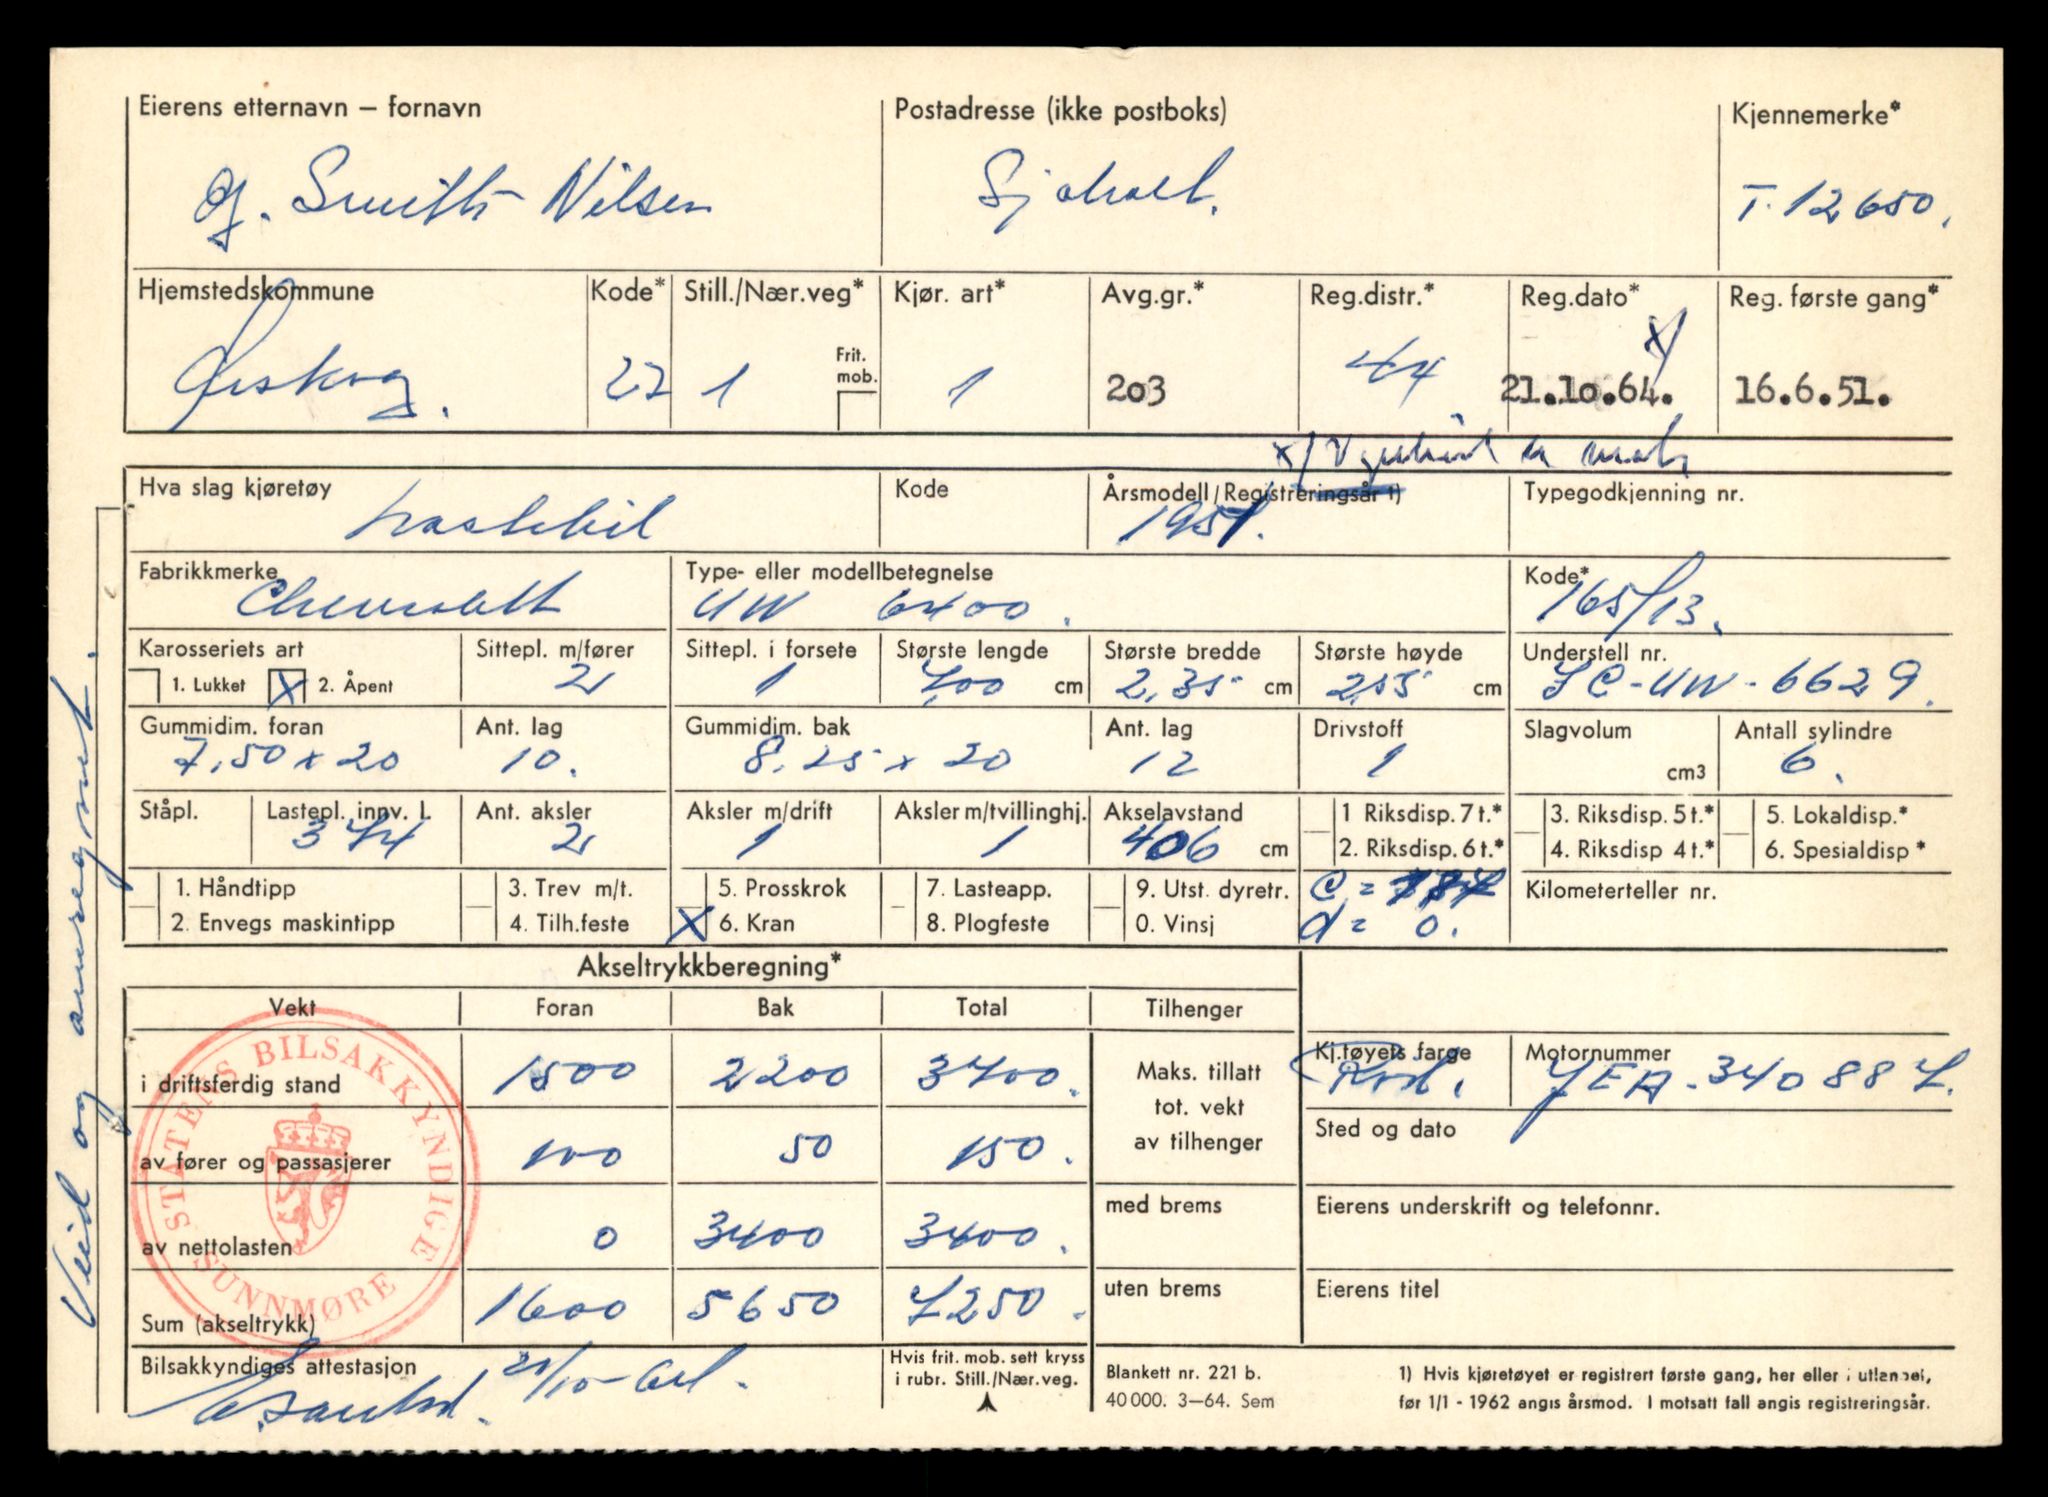 Eierens etternavn – fornavn Postadresse (ikke postboks) Kjennemerke*
Smith Nilsen Sjøholt. T-12650.
Hjemstedskommune Kode* Still./Nær.veg* Kjør. art* Avg.gr.* Reg.distr.* Reg.dato* Reg. første gang*
Frit.
mob.
Ørskog. 27 1 1 203 44 21.10.64. x/ 16.6.51.
x/
Hva slag kjøretøy Kode Årsmodell/Registreringsår 1) Typegodkjenning nr.
Lastebil 1951.
Fabrikkmerke Type- eller modellbetegnelse Kode*
Chevrolett UW 6400. 165/13.
Karosseriets art Sittepl. m/fører Sittepl. i forsete Største lengde Største bredde Største høyde Understell nr.
1. Lukket X 2. Åpent 2 1 7,00 cm 2,35 cm 2,55 cm JC-UW-6629.
Gummidim. foran Ant. lag Gummidim. bak Ant. lag Drivstoff Slagvolum Antall sylindre
7,50 x 20 10. 8,25 x 20 12 1 cm3 6.
Ståpl. Lastepl. innv. l. Ant. aksler Aksler m/drift Aksler m/tvillinghj. Akselavstand 1 Riksdisp. 7 t.* 3. Riksdisp. 5 t.* 5. Lokaldisp.*
344 2 1 1 406 cm 2. Riksdisp. 6 t.* 4. Riksdisp 4 t.* 6. Spesialdisp *
1. Håndtipp 3. Trev m/t. 5. Prosskrok 7. Lasteapp. 9. Utst. dyretr. C = Kilometerteller nr.
2. Envegs maskintipp 4. Tilh.feste X 6. Kran 8. Plogfeste 0. Vinsj d = 0.
Akseltrykkberegning*
Vekt Foran Bak Total Tilhenger
i driftsferdig stand 1500 2200 3700. Maks. tillatt Kj.tøyets farge Motornummer
tot. vekt Rød. JEA-340887.
av fører og passasjerer 100 50 150. av tilhenger Sted og dato
av nettolasten 0 3400 3400. med brems Eierens underskrift og telefonnr.
Sum (akseltrykk) 1600 5650 7250. uten brems Eierens titel
Bilsakkyndiges attestasjon 21/10-64.
Hvis frit. mob. sett kryss
i rubr. Still./Nær.veg.
Blankett nr. 221 b.
40 000. 3–64. Sem
1) Hvis kjøretøyet er registrert første gang, her eller i utlandet,
før 1/1 - 1962 angis årsmod. I motsatt fall angis registreringsår.
STATENS BILSAKKYNDIGE
SUNNMØRE
Veid og omregnet.